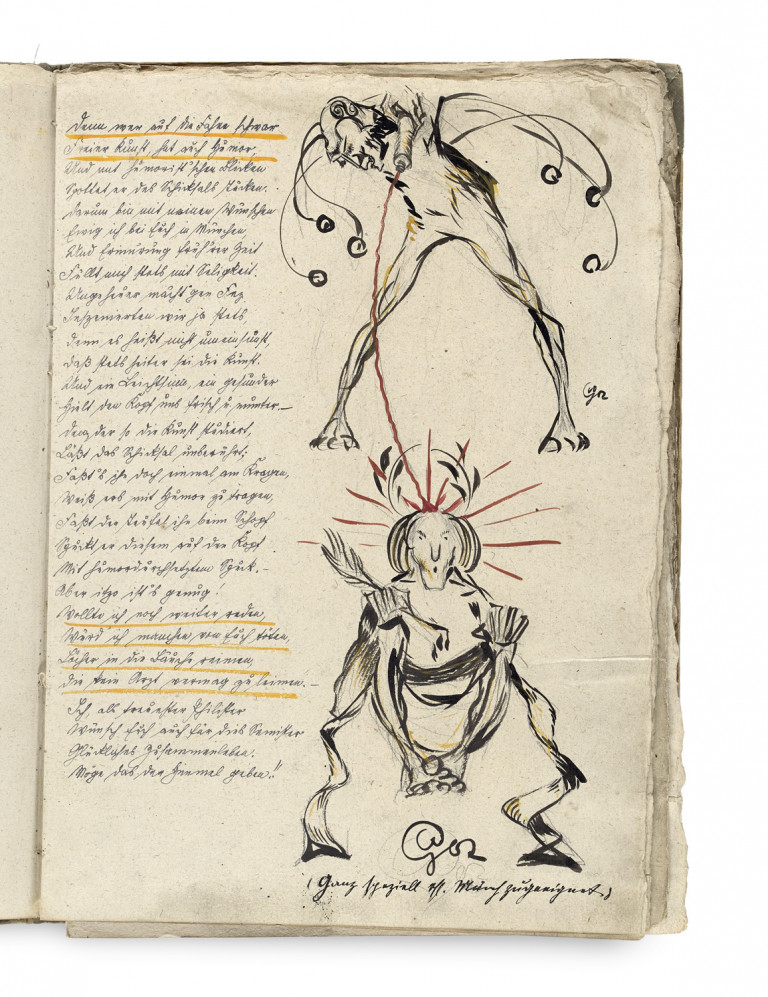 Denn wer auf die Fahne schwor
Freier Kunst, hat auch Humor,
Und mit humorist'schen Blicken
Spottet er des Schicksals Tücken.
Darum bin mit meinen Wünschen
Ewig ich bei Euch in München,
Und Erinnrung früh'rer Zeit
Füllt mich stets mit Seligkeit.
Ungeheuer mächt'gen Fez
Inszenierten wir ja stets
Denn es heißt nicht umeinsunst,
Daß stets heiter sei die Kunst.
Und ein Leichtsinn, ein gesunder
Hielt den Kopf uns frisch u. munter. –
Denn der so die Kunst studiert,
Läßt das Schicksal unberührt;
Faßt's ihn doch einmal am Kragen,
Weiß er's mit Humor zu tragen,
Faßt der Teufel ihn beim Schopf
Spuckt er diesem auf den Kopf
Mit humordurchsetztem Spuck. –
Aber itzo ist's genug!
Wollte ich noch weiter reden,
Würd ich manchen von Euch töten,
Löcher in die Bäuche reimen
Die kein Arzt vermag zu leimen. –
Ich als treuester Philister
Wünsch Euch auch für dies Semister
Glückliches Zusammenleben.
Möge das der Himmel geben!!
(Ganz speziell Münch zugeeignet.)